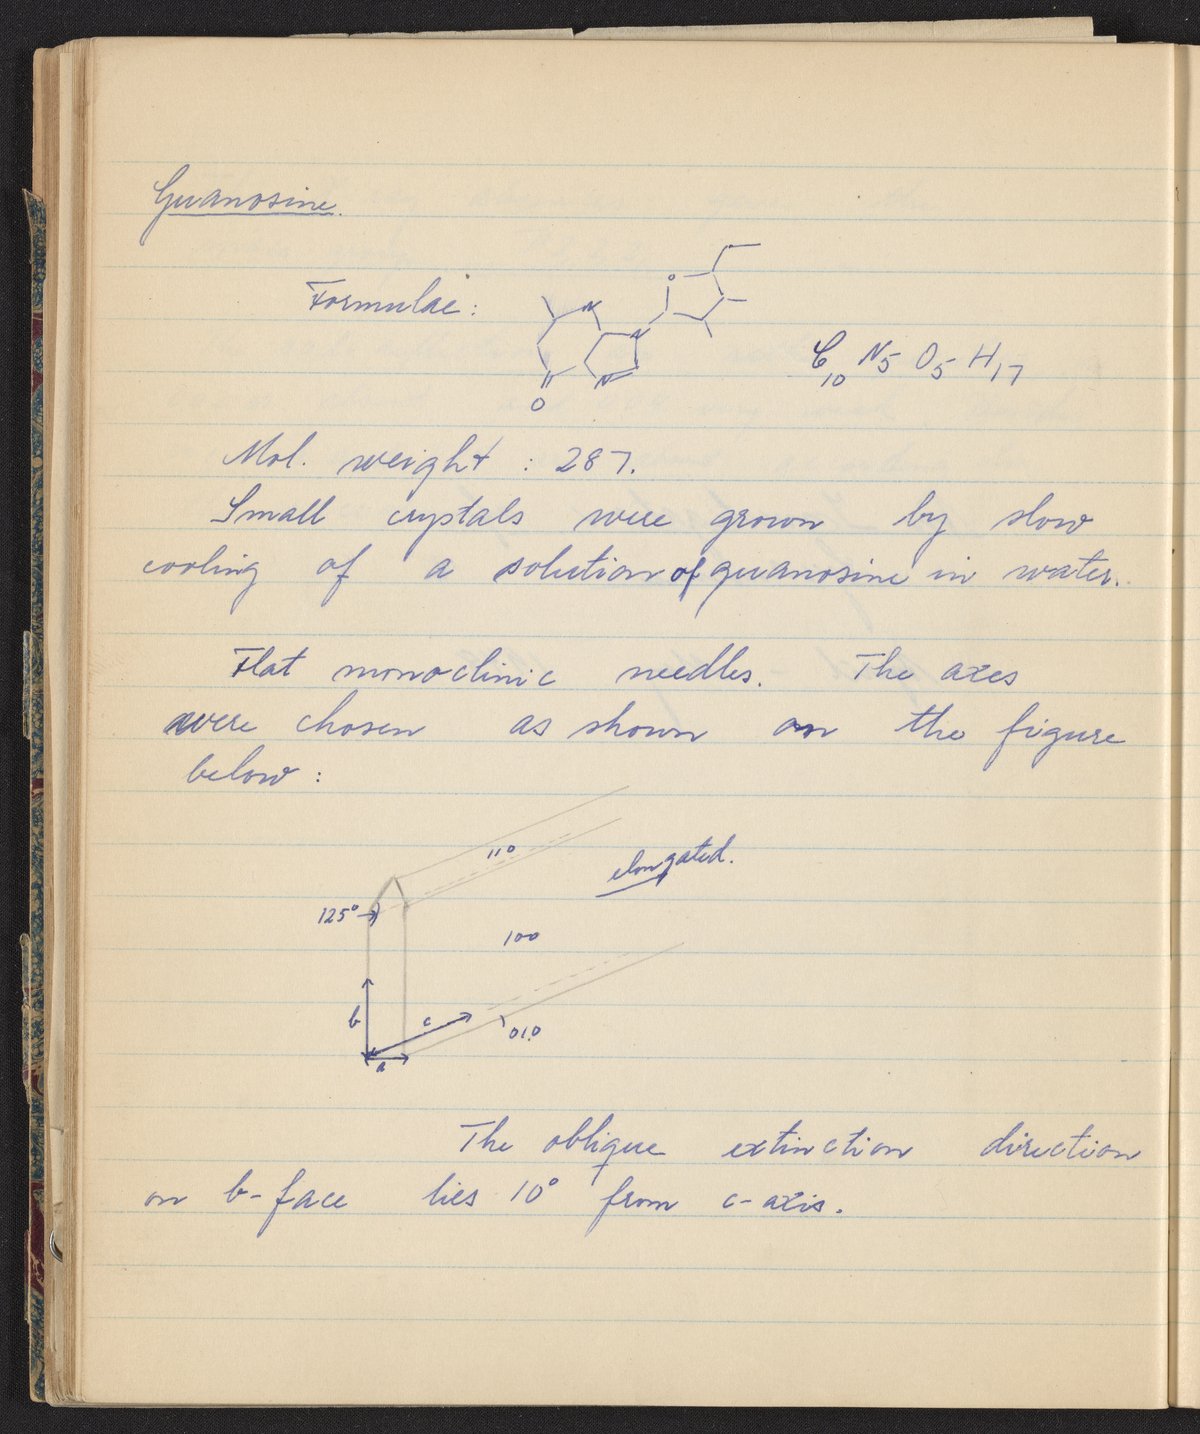 Guanosine.
Formulae:
N
N
N
O
O
C10 N5 O5 H17
Mol. weight : 287.
Small crystals were grown by slow
cooling of a solution of guanosine in water.
Flat monoclinic needles. The axes
were chosen as shown on the figure
below :
110
elongated.
125°
100
b
c
010
a
The oblique extinction direction
on b-face lies 10° from c-axis.